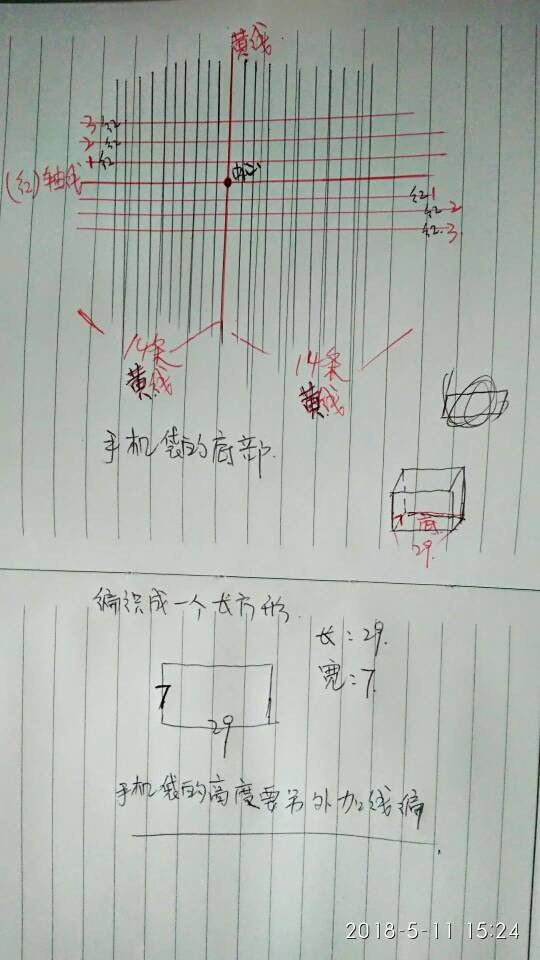 黄线
3 红
2 红
1 红
中心
(红) 轴线
红1
红2
红.3
14条
黄线
14条
黄线
手机袋的底部.
7 底
29.
编织成一个长方形.
长:29.
宽:7.
7
29
手机袋的高度要另外加线编
2018-5-11 15:24